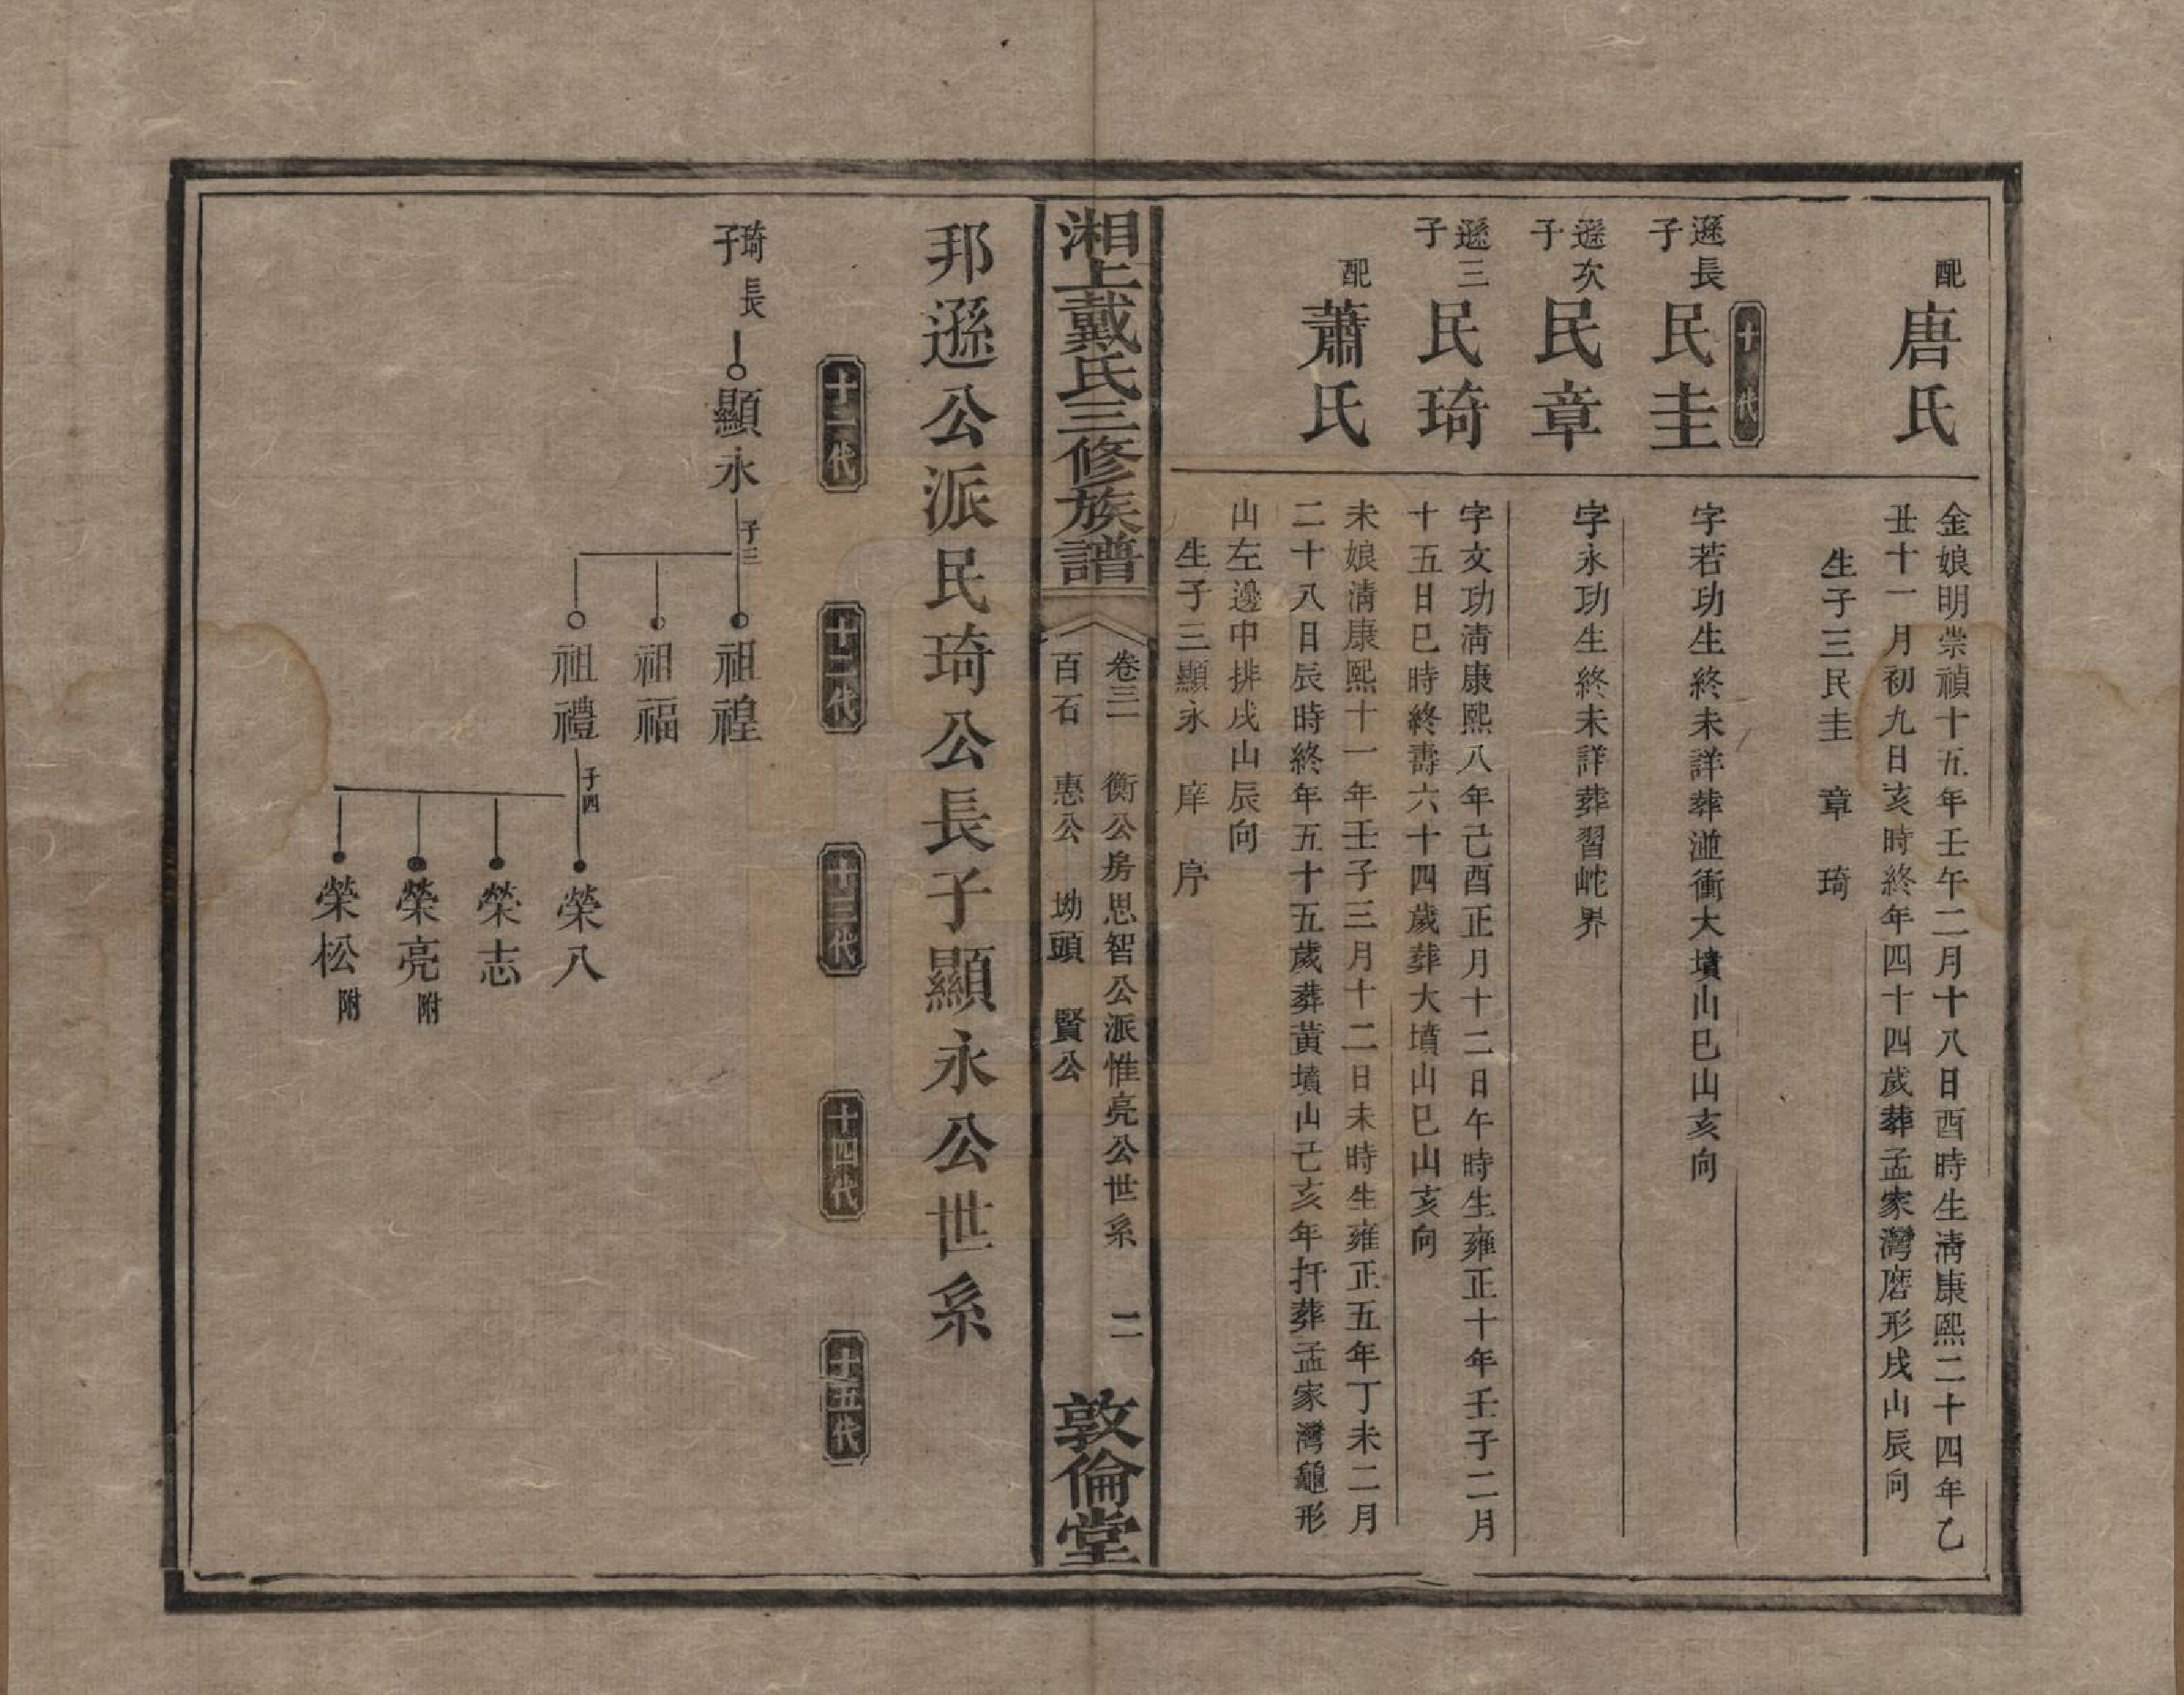 配
唐氏
金娘明崇禎十五年壬午二月十八日酉時生清康熙二十四年乙
丑十一月初九日亥時終年四十四歲葬孟家灣磨形戌山辰向
生子三民圭 章 琦
十代
遜長
子
民圭
字若功生終未詳葬湴衝大墳山巳山亥向
遜次
子
民章
字永功生終未詳葬習岮界
遜三
子
民琦
字文功清康熙八年己酉正月十二日午時生雍正十年壬子二月
十五日巳時終壽六十四歲葬大墳山巳山亥向
配
蕭氏
未娘清康熙十一年壬子三月十二日未時生雍正五年丁未二月
二十八日辰時終年五十五歲葬黃墳山己亥年扦葬孟家灣龜形
山左邊中排戌山辰向
生子三顯永 庠 序
湘上戴氏三修族譜
卷三 衡公房思智公派惟亮公世系 二
百石 惠公 坳頭 賢公
敦倫堂
邦遜公派民琦公長子顯永公世系
十一代
十二代
十三代
十四代
十五代
琦長
子
顯永
子三
祖徨
祖福
祖禮
子四
榮八
榮志
榮亮附
榮松附